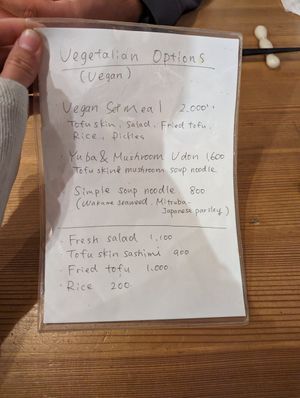 Vegetalian Options
(Vegan)
Vegan Set Meal 2.000
Tofu skin, Salad, Fried tofu,
Rice, Pickles
· Yuba & Mushroom Udon 1,600
Tofu skin & mushroom soup noodle
Simple soup noodle 800
(Wakame seaweed, Mitsuba-
Japanese parsley)
· Fresh salad 1,100
Tofu skin sashimi 900
· Fried tofu 1.000
· Rice 200